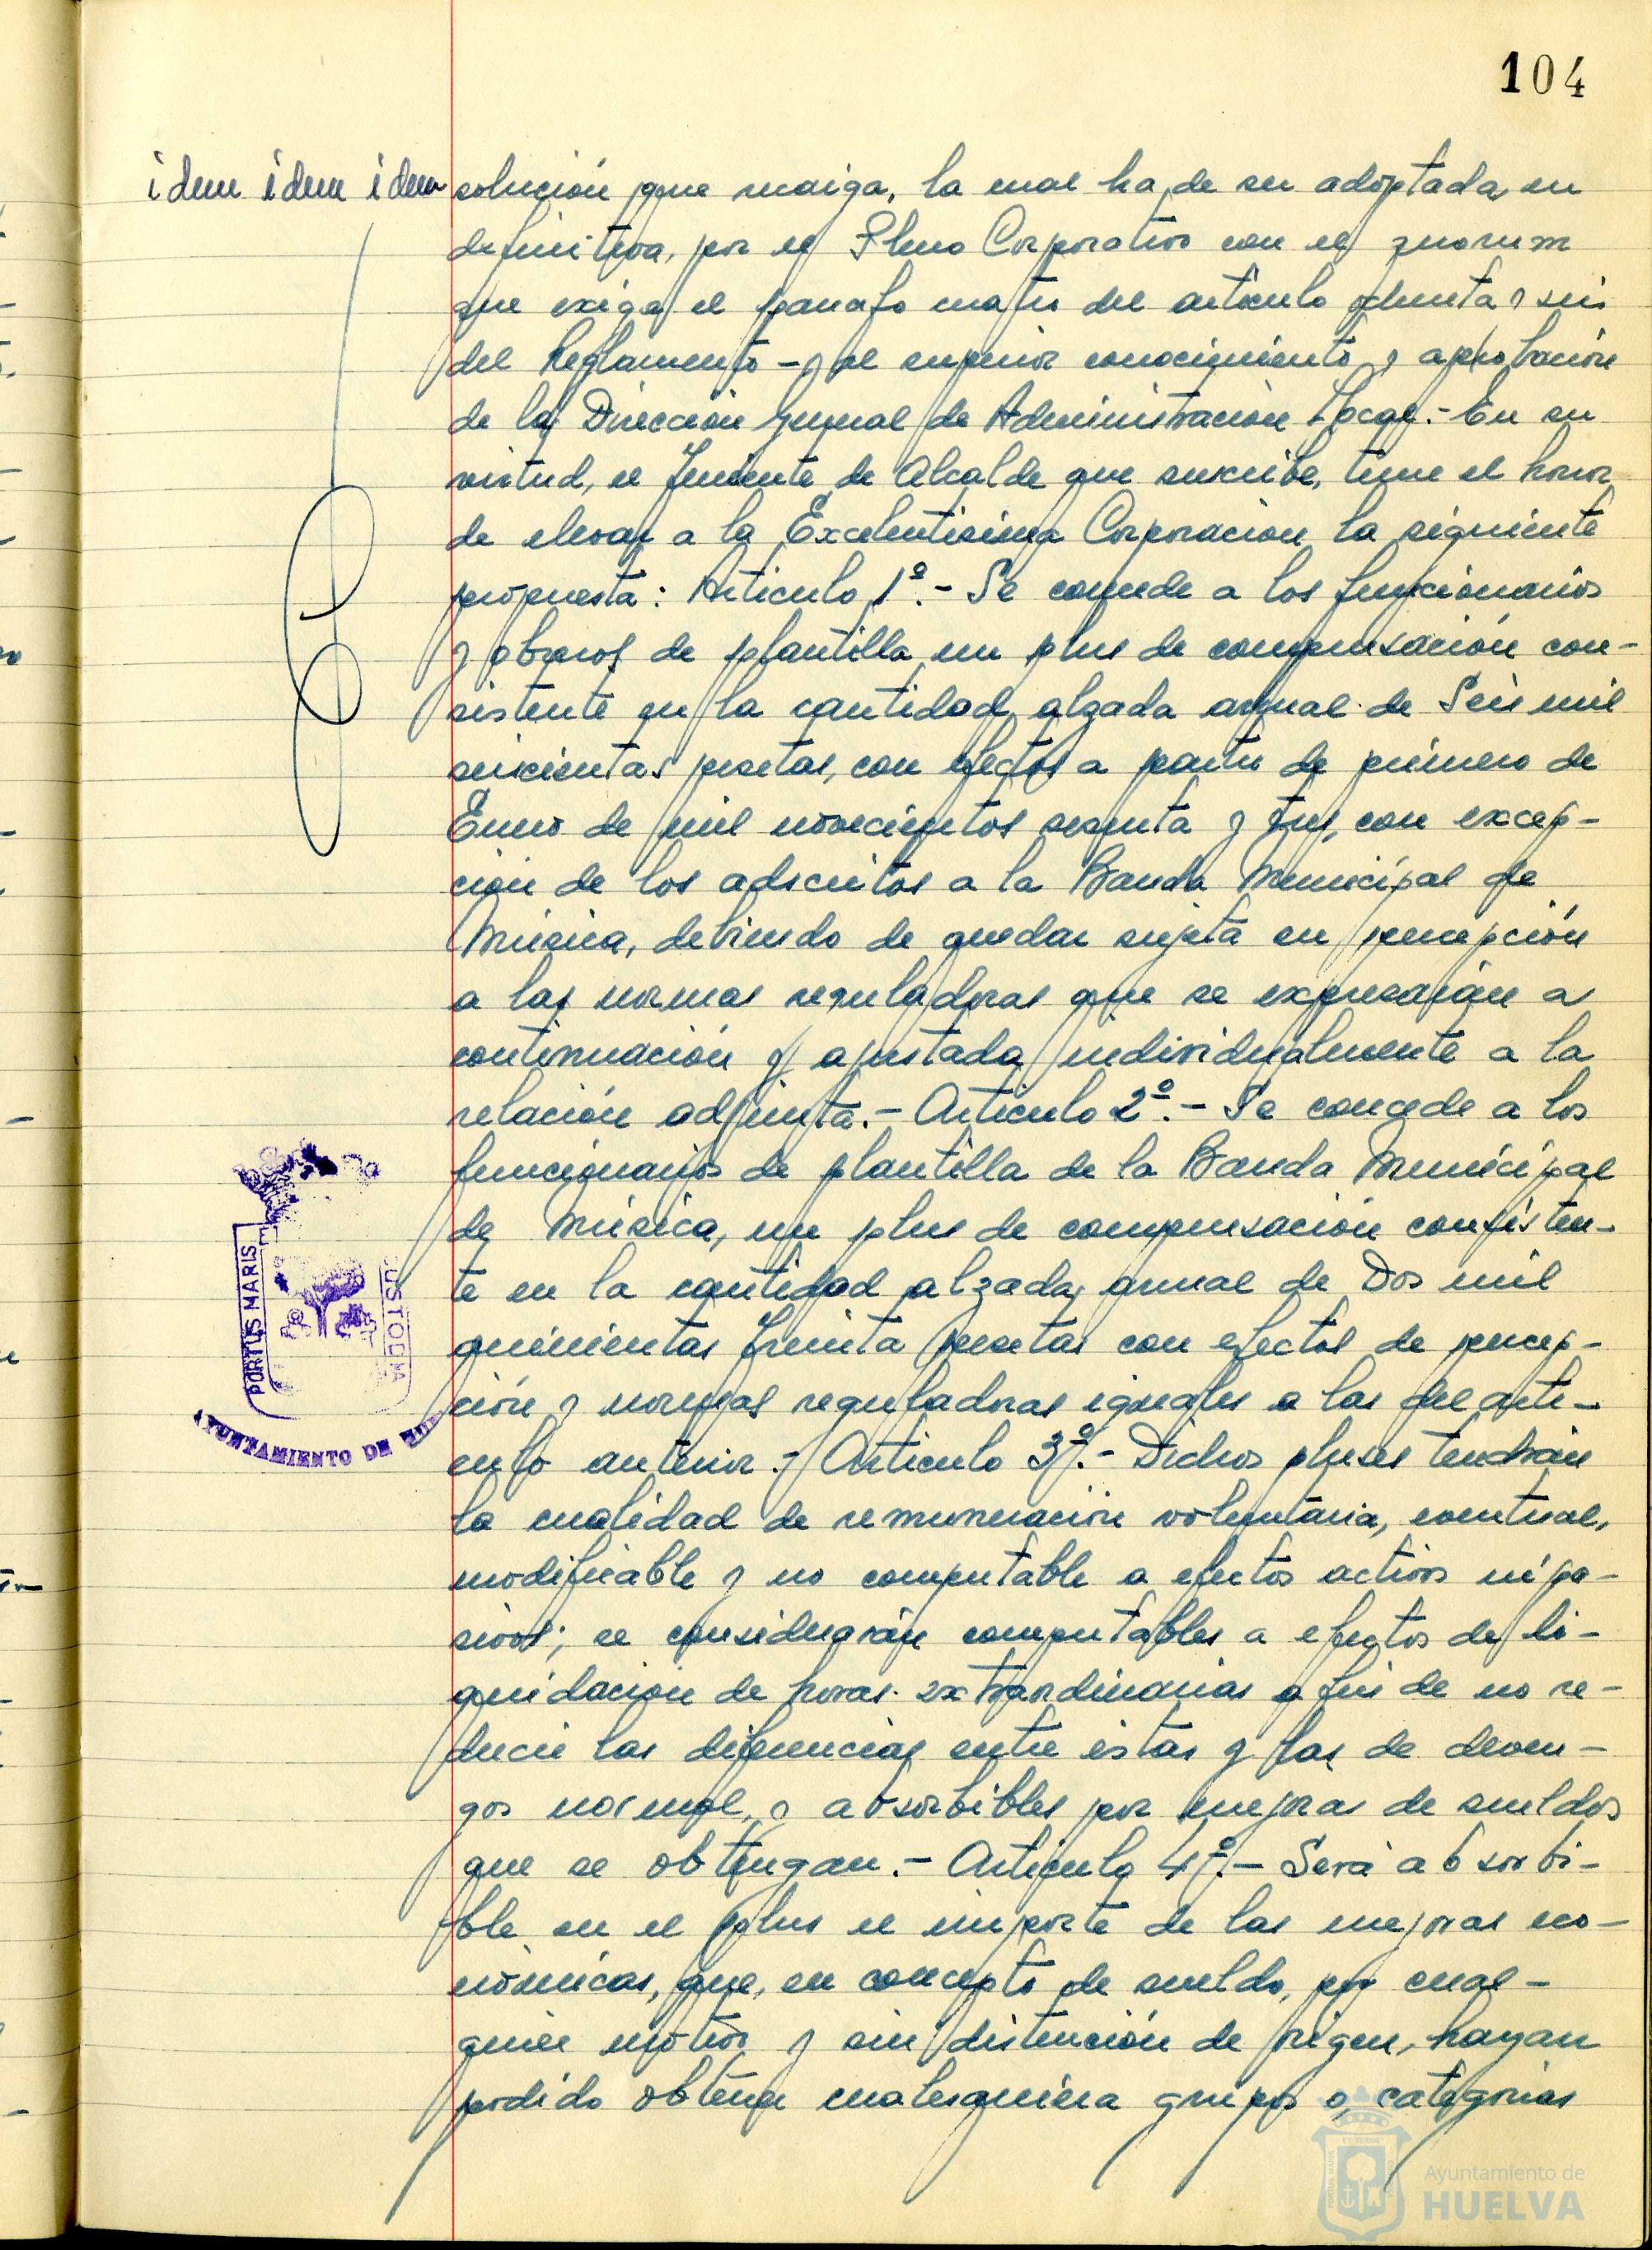 104
idem idem idem
solución que recaiga, la cual ha de ser adoptada en
definitiva, por el Pleno Corporativo con el quorum
que exige el párrafo cuatro del artículo ochenta y seis
del Reglamento - y al superior conocimiento y aprobación
de la Dirección General de Administración Local.- En su
virtud, el Teniente de Alcalde que suscribe, tiene el honor
de elevar a la Excelentisima Corporación la siguiente
propuesta: Articulo 1º.- Se concede a los funcionarios
y obreros de plantilla un plus de compensación con-
sistente en la cantidad alzada anual de Seis mil
seiscientas pesetas, con efectos a partir de primero de
Enero de mil novecientos sesenta y tres, con excep-
ción de los adscritos a la Banda Municipal de
Música, debiendo de quedar sujeta su percepción
a las normas reguladoras que se expresarán a
continuación y ajustada individualmente a la
relación adjunta.- Articulo 2º.- Se concede a los
funcionarios de plantilla de la Banda Municipal
de Música, un plus de compensación consisten-
te en la cantidad alzada, anual de Dos mil
quinientas treinta pesetas con efectos de percep-
ción y normas reguladoras iguales a las del artí-
culo anterior.- Articulo 3º.- Dichos pluses tendrán
la cualidad de remuneración voluntaria, eventual,
modificable y no computable a efectos activos ni pa-
sivos; se considerarán computables a efectos de li-
quidación de horas extraordinarias a fin de no re-
ducir las diferencias entre éstas y las de deven-
gos normal, y absorbibles por mejoras de sueldos
que se obtengan.- Articulo 4º.- Será absorbi-
ble en el plus el importe de las mejoras eco-
nómicas, que, en concepto de sueldo, por cual-
quier motivo y sin distinción de origen, hayan
podido obtener cualesquiera grupos o categorías
PORTUS MARIS
CUSTODIA
AYUNTAMIENTO DE HUE
Ayuntamiento de
HUELVA